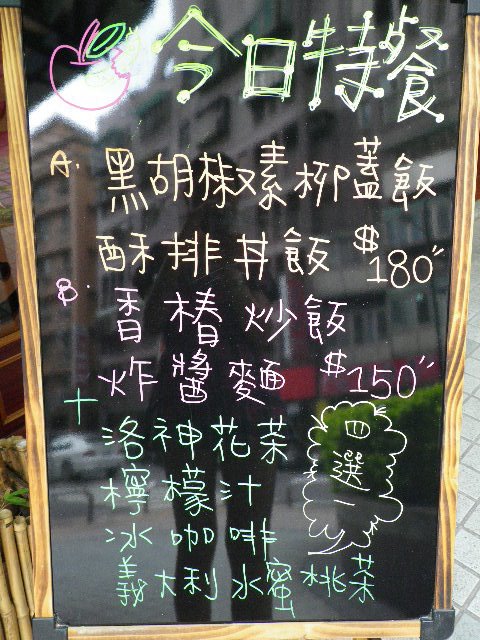 今日特餐
A. 黑胡椒素柳蓋飯
酥排丼飯 $180"
B. 香椿炒飯
炸醬麵 $150"
+
洛神花茶
檸檬汁
冰咖啡
義大利水蜜桃茶
四選一